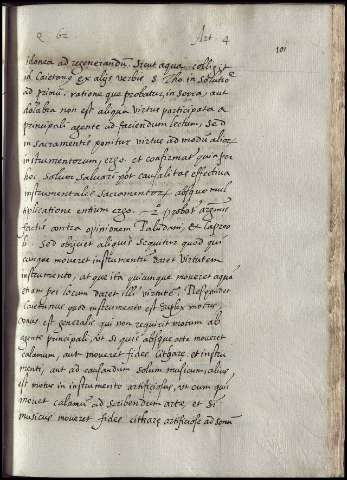 q 62 Art 4
101
idonea ad regenerandũ. Sicut aqua. colligit
id Caietanꝰ ex alijs verbis S. Tho. in solutiõe
ad primũ. ratione que probatur, in serra, aut
dolabra non est aliqua virtus participata a
principali agente ad faciendum lectum, sed
in sacramentis ponitur virtus ad modũ aliorũ
instrumentorum, ergo. et confirmat quia per
hoc solum saluari põt causalitas effectiua
instrumentalis sacramentorũ absque mul
tiplicatione entium ergo. 2º probat
factis contra opinionem Paludani, et
Sed obijciet aliquis sequitur quod qui
cunque moueret instrumentũ daret virtutem
instrumento, atque ita quicunque moueret aquã
etiam per locum daret illi virtutẽ. Respondet
Caietanus quod instrumento est duplex motus,
vnus est generalis qui non requirit motum ab
agente principali, vt si quis absque arte moueret
calamum, aut moueret fides citharę et instru
menti, aut ad causandum solum musicum, alius
est motus in instrumento artificiosus, vt cum quis
mouet calamũ ad scribendum arte, et si
musicus moueret fides citharę artificiose ad sonũ